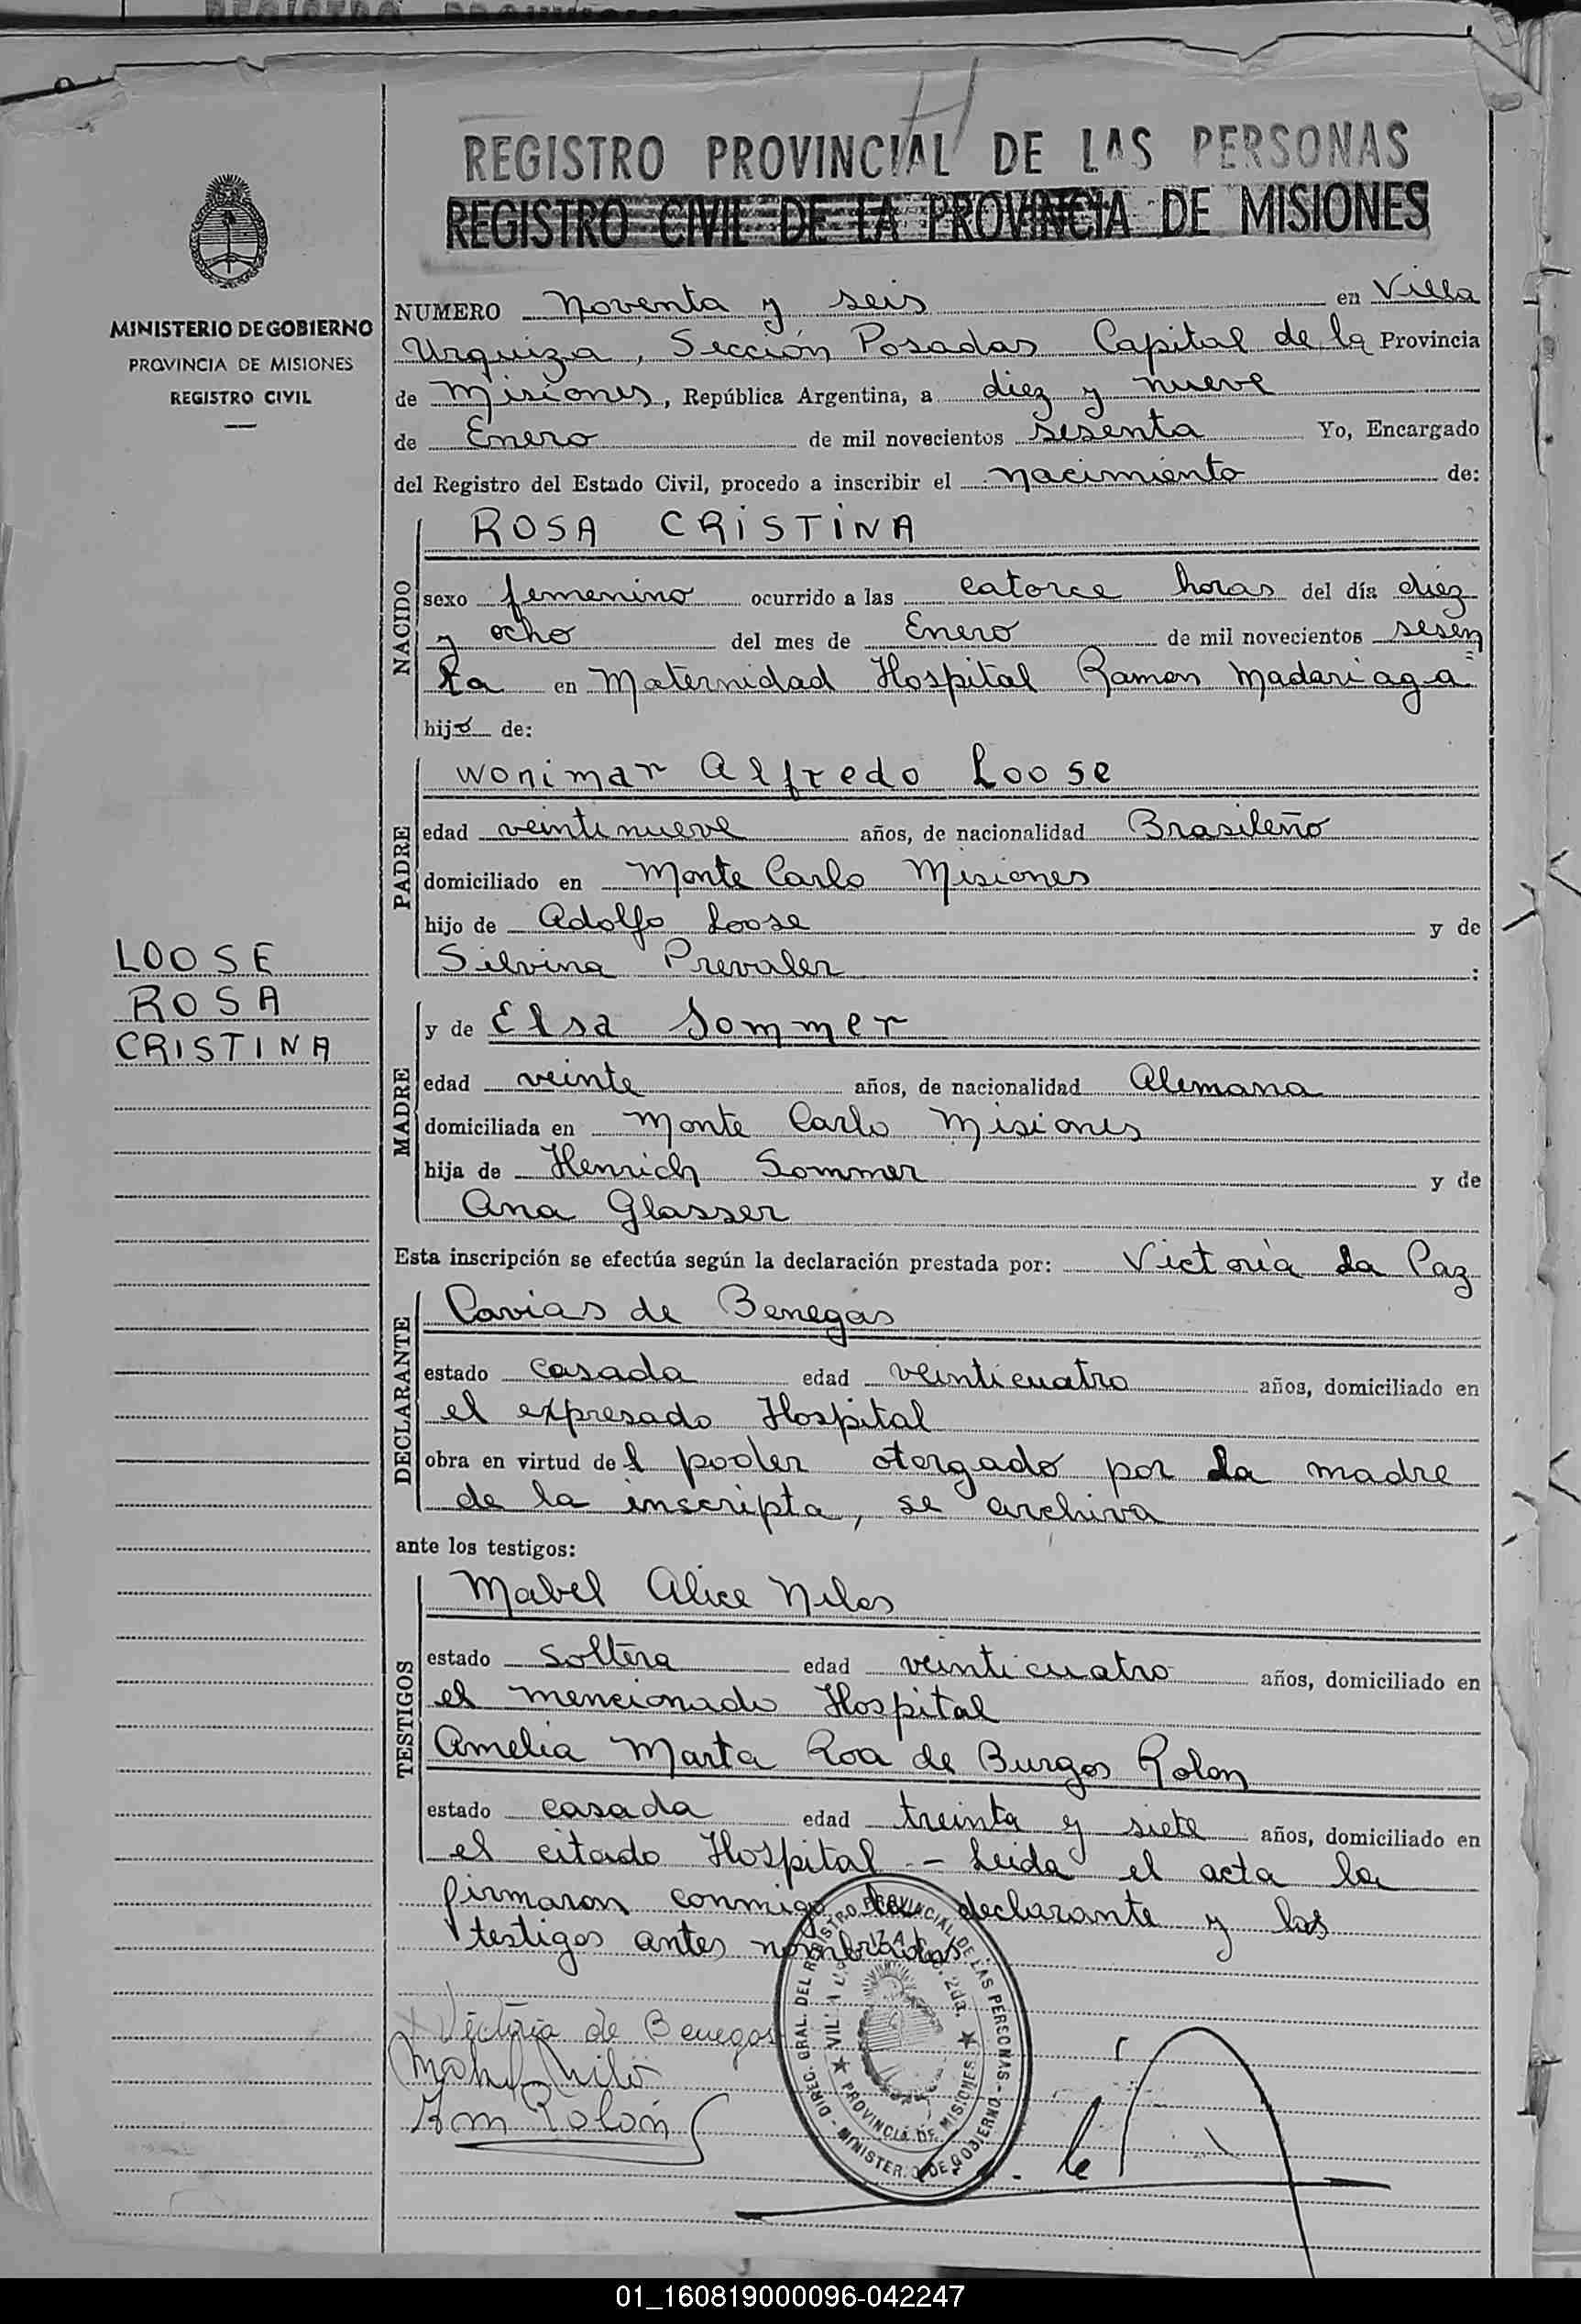 REGISTRO PROVINCIAL DE LAS PERSONAS
REGISTRO CIVIL DE LA PROVINCIA DE MISIONES
MINISTERIO DE GOBIERNO
PROVINCIA DE MISIONES
REGISTRO CIVIL
NUMERO Noventa y seis en Villa
Urquiza, Sección Posadas Capital de la Provincia
de Misiones, República Argentina, a diez y nueve
de Enero de mil novecientos sesenta Yo, Encargado
del Registro del Estado Civil, procedo a inscribir el nacimiento de:
NACIDO
ROSA CRISTINA
sexo femenino ocurrido a las catorce horas del día diez
y ocho del mes de Enero de mil novecientos sesen
ta en Maternidad Hospital Ramon Madariaga
hija de:
PADRE
Wonimar Alfredo Loose
edad veintinueve años, de nacionalidad Brasileño
domiciliado en Monte Carlo Misiones
hijo de Adolfo Loose y de
Silvina Prevaler :
LOOSE
ROSA
CRISTINA
MADRE
y de Elsa Sommer
edad veinte años, de nacionalidad Alemana
domiciliada en Monte Carlo Misiones
hija de Henrich Sommer y de
Ana Glasser
Esta inscripción se efectúa según la declaración prestada por: Victoria La Paz
DECLARANTE
Cavias de Benegas
estado casada edad veinticuatro años, domiciliado en
el expresado Hospital
obra en virtud del poder otorgado por la madre
de la inscripta, se archiva
ante los testigos:
TESTIGOS
Mabel Alice Niles
estado soltera edad veinticuatro años, domiciliado en
el mencionado Hospital
Amelia Marta Roa de Burgos Rolon
estado casada edad treinta y siete años, domiciliado en
el citado Hospital - Leida el acta la
firmaron conmigo la declarante y los
testigos antes nombrados
Victoria de Benegas
DIREC. GRAL. DEL REGISTRO PROVINCIAL DE LAS PERSONAS - MINISTERIO DE GOBIERNO -
★ PROVINCIA DE MISIONES ★
01_160819000096-042247